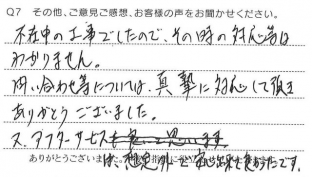 Q7　その他、ご意見ご感想、お客様の声をお聞かせください。
不在中の工事でしたので、その時の対応等は
わかりません。
問い合わせ等については、真摯に対応して頂き
ありがとうございました。
又、アフターサービスも良いと思います
は、想定外で安心出来て良かったです。
ありがとうございました。